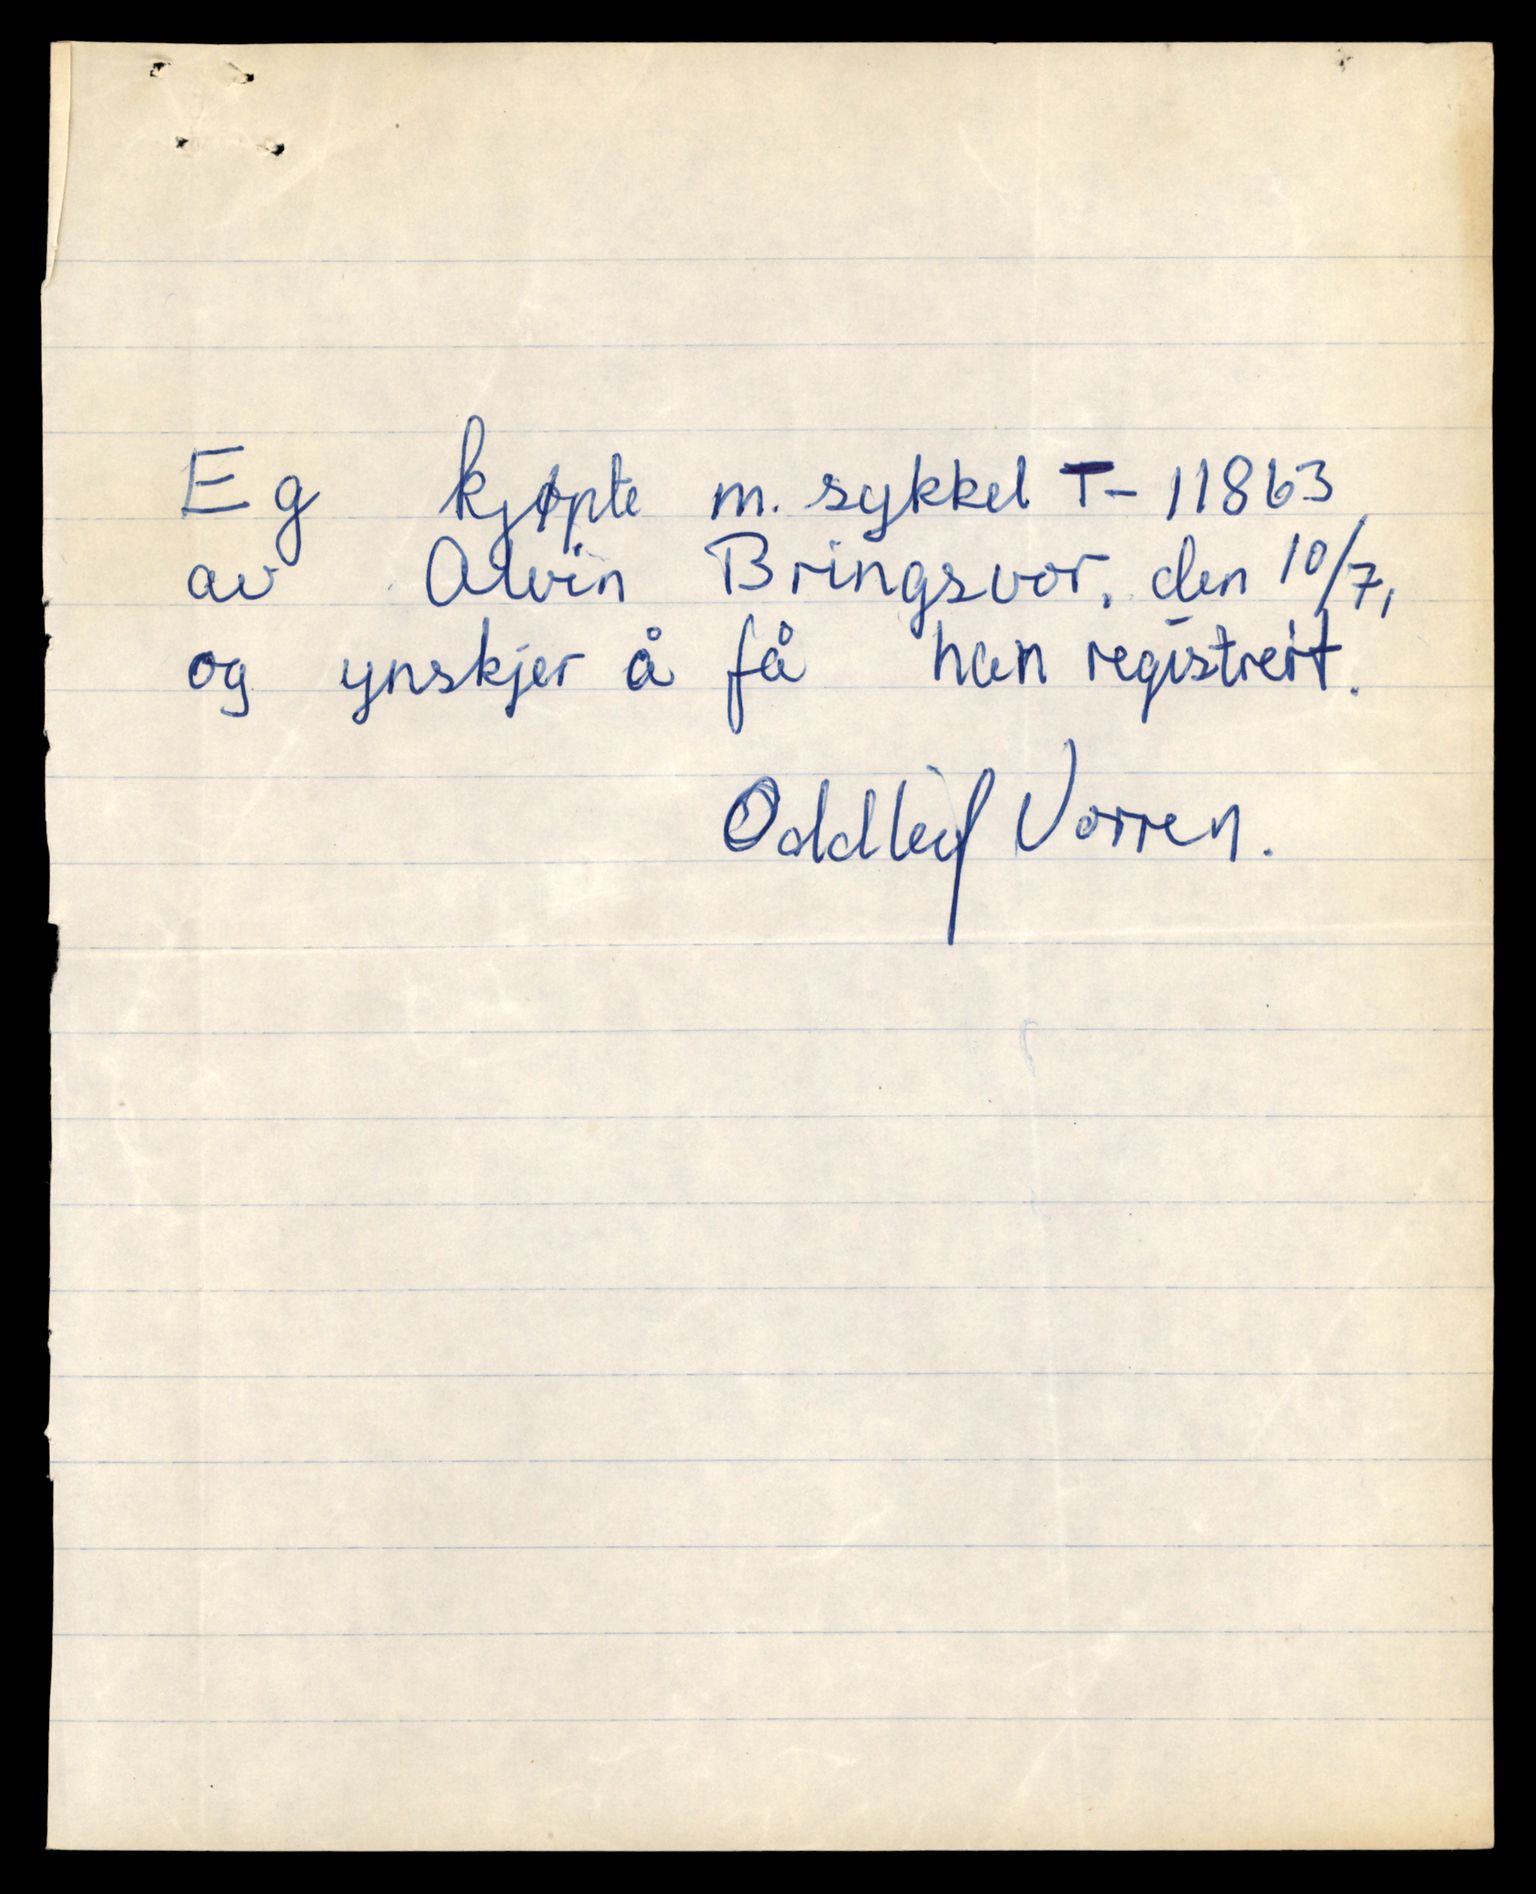 Eg kjøpte m. sykkel T- 11863
av Alvin Bringsvor, den 10/7,
og ynskjer å få han registrert.
Oddleif Vorren.